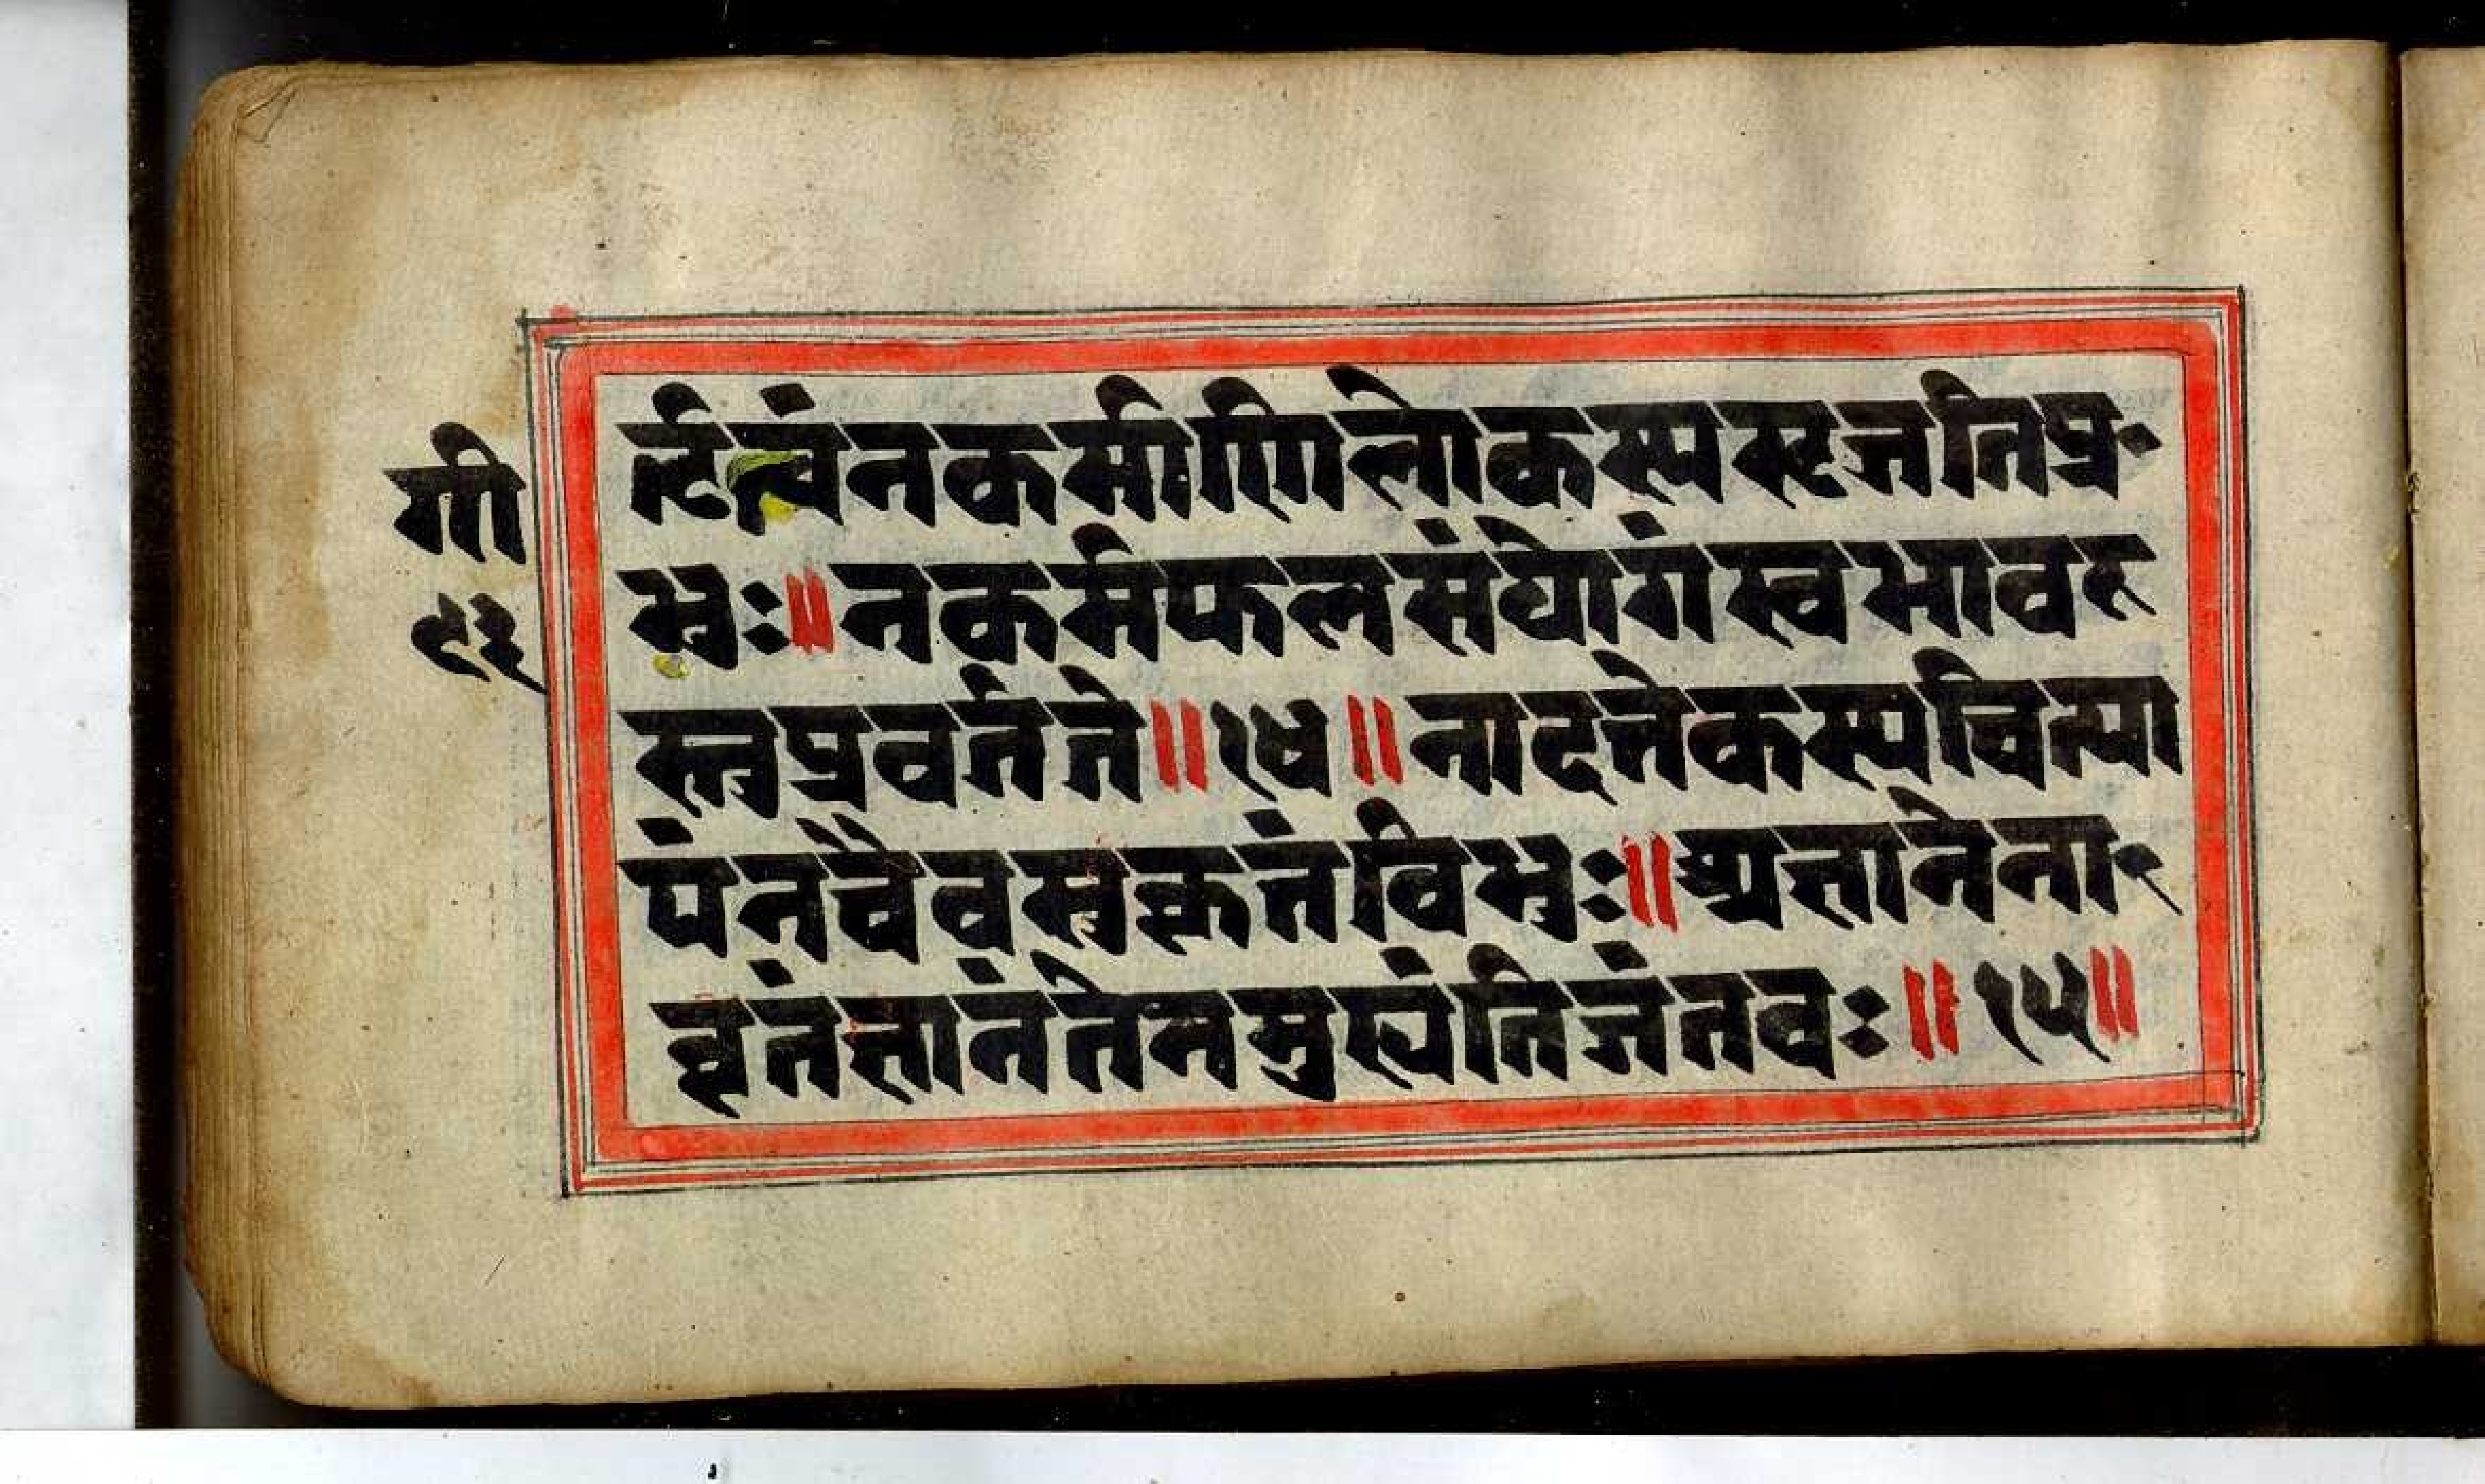 गी
९३
र्टत्वंनकर्माणिलोकस्यसृजतिप्र
भुः॥नकर्मफलसंयोगंस्वभावस्
स्तुप्रवर्तते॥१४॥नादत्तेकस्यचित्पा
पंनचैवसुकृतंविभुः॥अज्ञानेना
वृतंज्ञानंतेनमुह्यंतिजंतवः॥१५॥